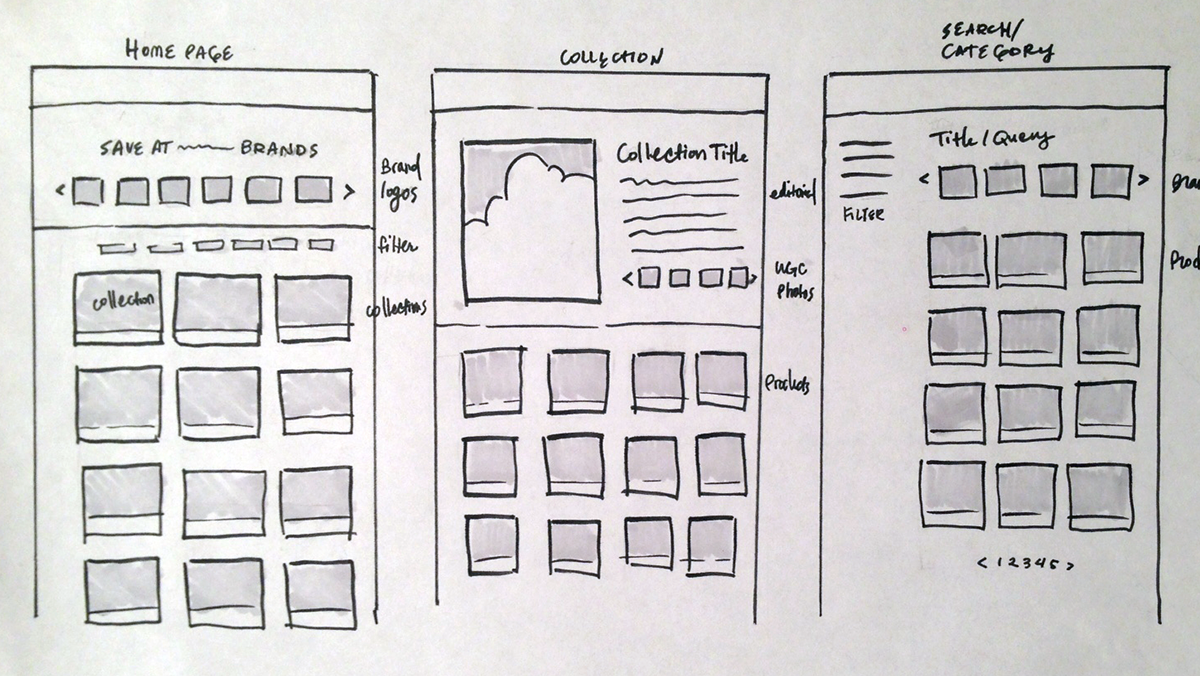 HOME PAGE
SAVE AT BRANDS
< >
Brand
logos
filter
collection
collections
COLLECTION
Collection Title
editorial
< >
UGC
Photos
Products
SEARCH/
CATEGORY
Title/Query
< >
FILTER
Bra
Prod
< 1 2 3 4 5 >